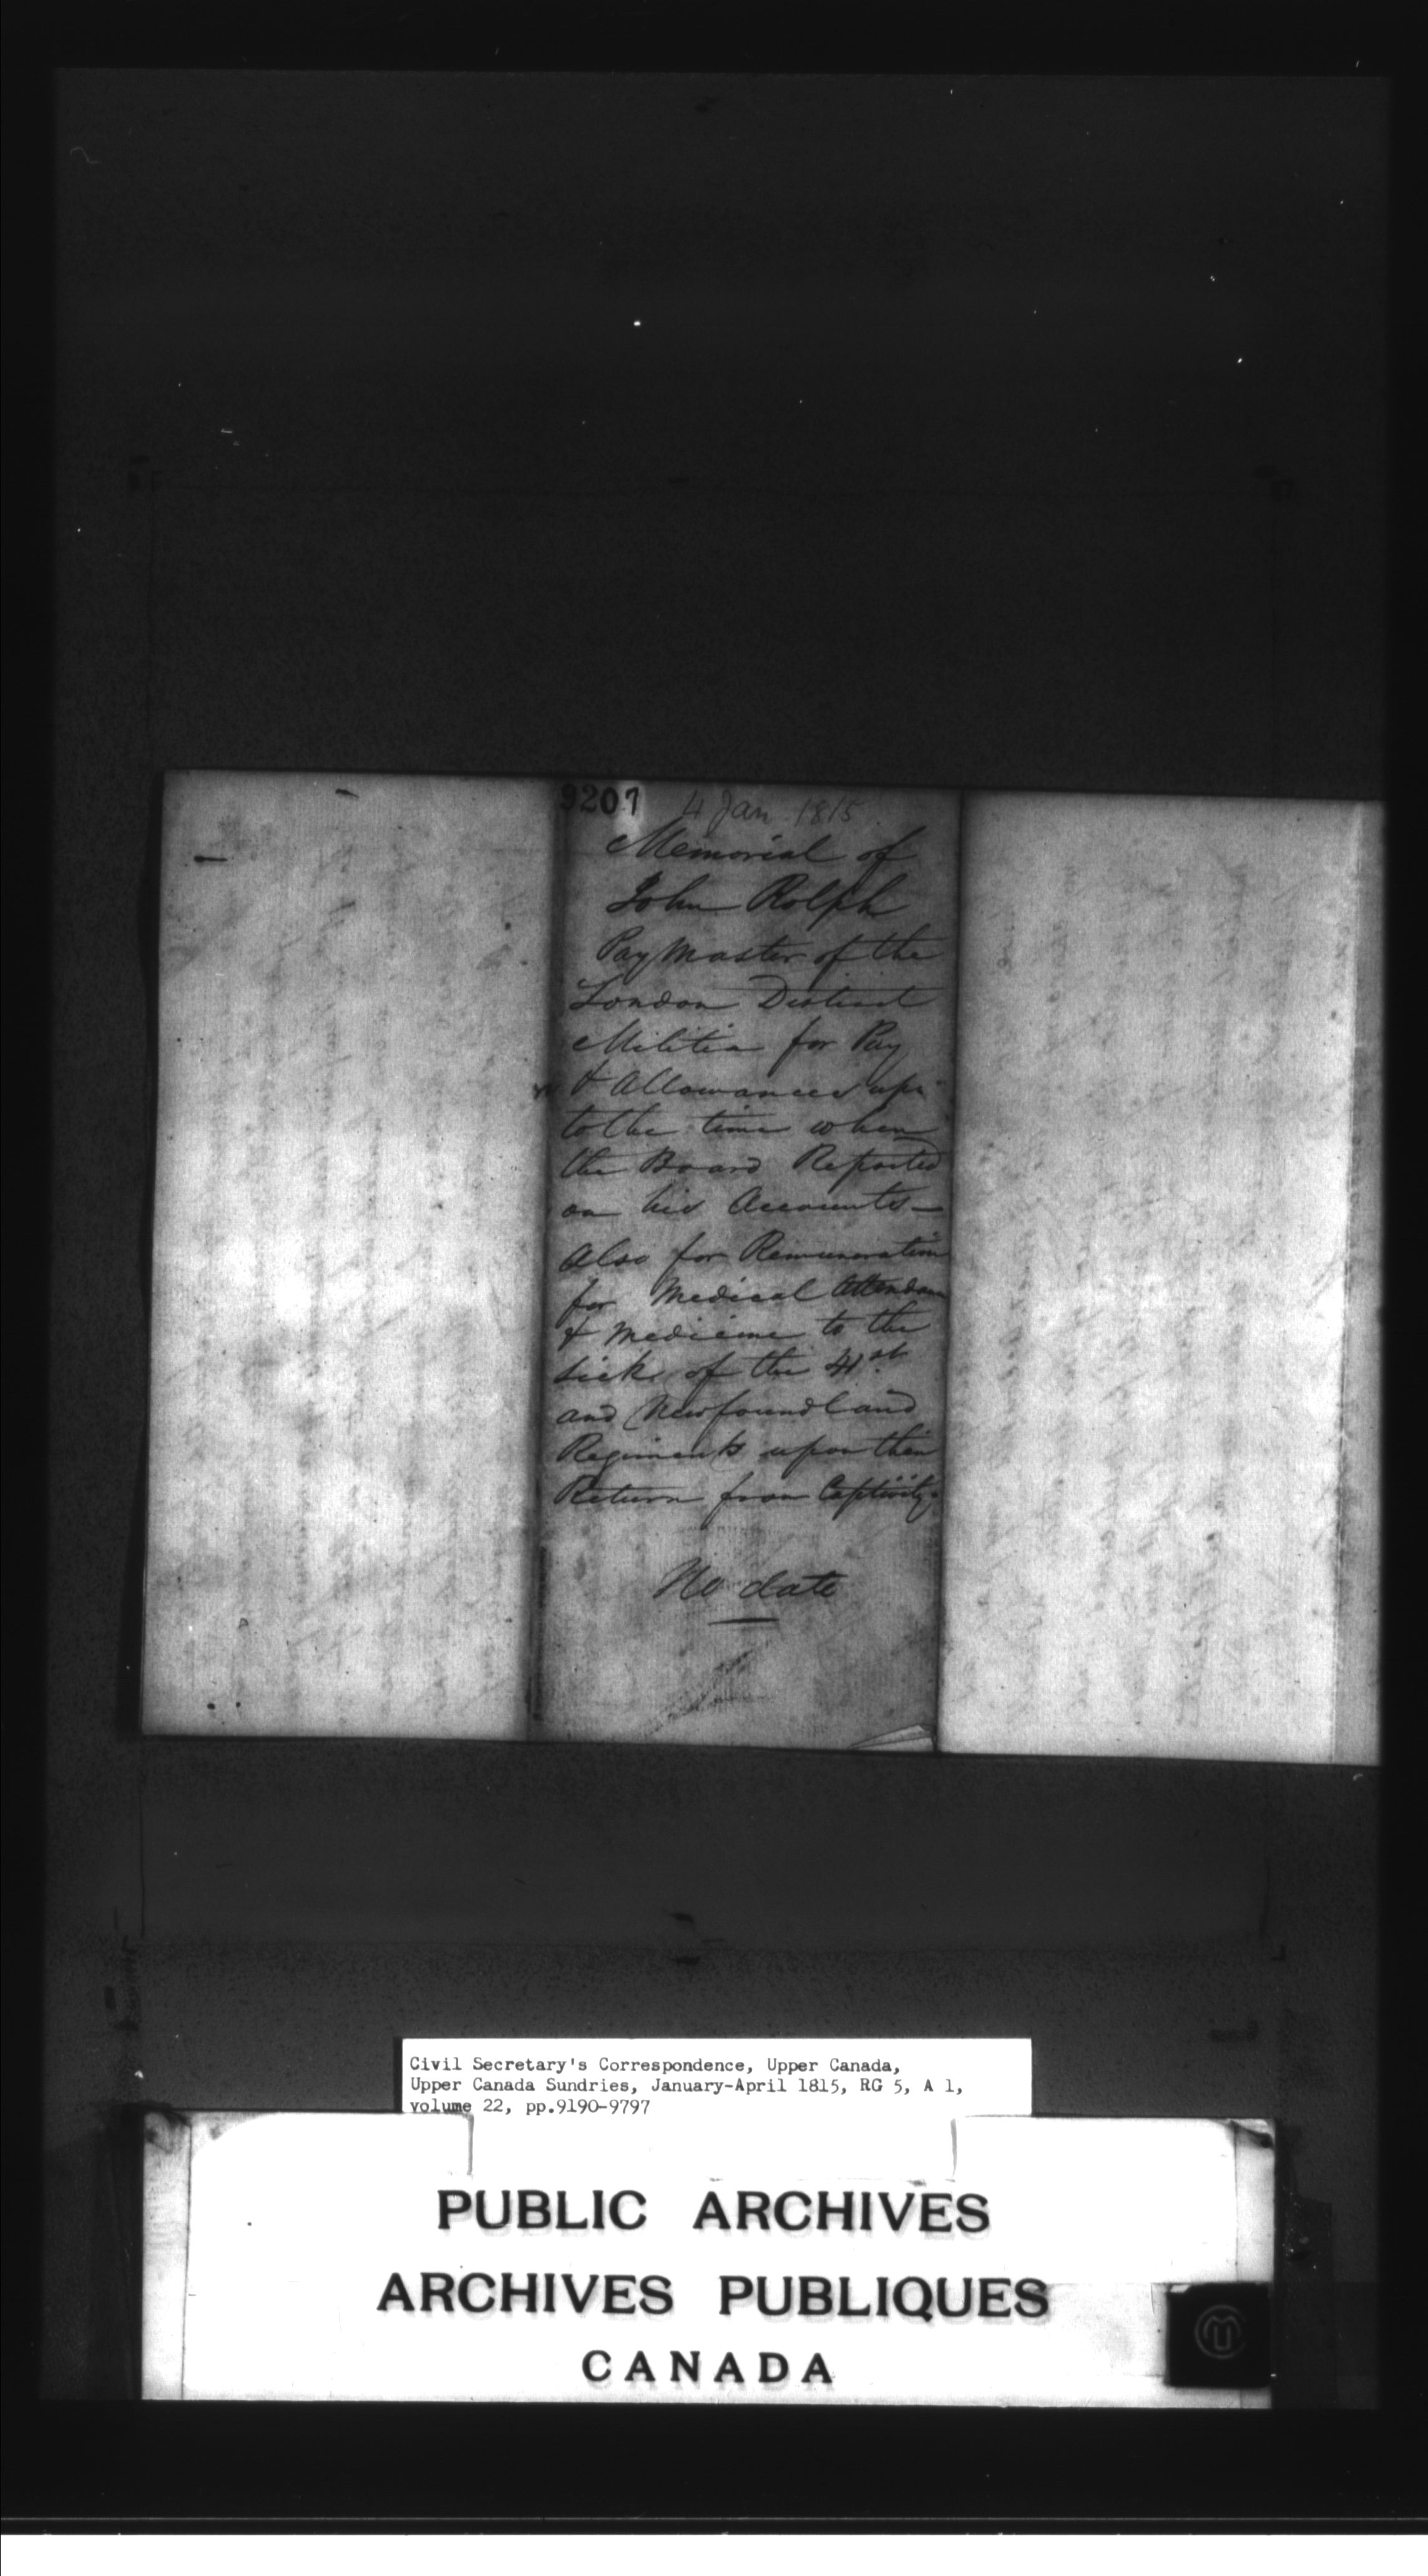 9207 4 Jan 1815
Memorial of
John Rolph
PayMaster of the
London District
Militia for Pay
& Allowances up
to the time when
the Board Reported
on his Accounts—
Also for Remuneration
for Medical Attendan
& Medicine to the
sick of the 41st
and Newfoundland
Regiments upon their
Return from Captivity.
No date
Civil Secretary's Correspondence, Upper Canada,
Upper Canada Sundries, January-April 1815, RG 5, A 1,
volume 22, pp.9190-9797
PUBLIC ARCHIVES
ARCHIVES PUBLIQUES
CANADA